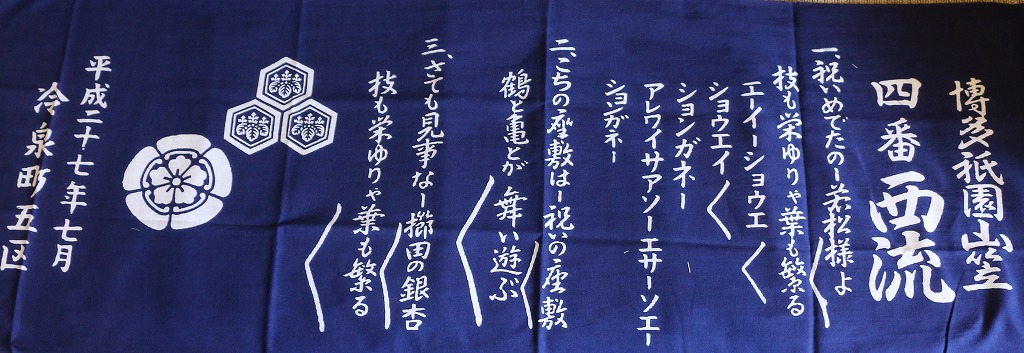 博多祇園山笠
四番西流
一、祝いめでたのー若松様よ
枝も栄ゆりゃ葉も繁る
エーイーショウエ
ショウエイ
ションガネー
アレワイサアソーエサーソエー
ションガネー
二、こちの座敷はー祝いの座敷
鶴と亀とが舞い遊ぶ
三、さても見事なー櫛田の銀杏
枝も栄ゆりゃ葉も繁る
平成二十七年七月
冷泉町五区